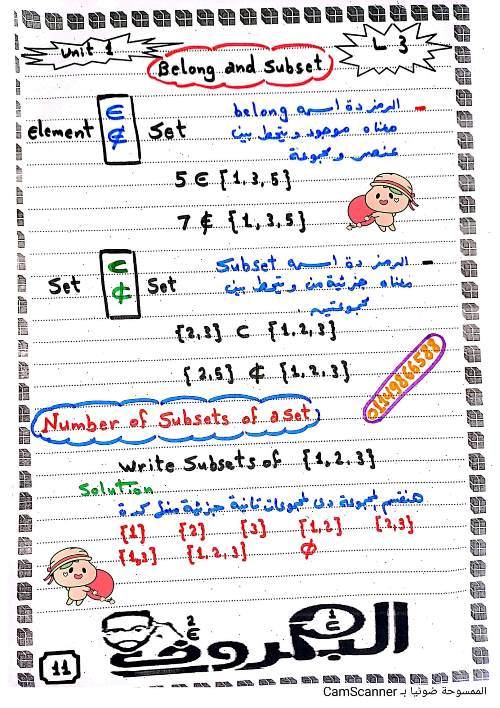 Unit 1
L 3
Belong and Subset
element ∈ ∉ Set
- الرمز دة اسمه belong
معناه موجود ويتحط بين
عنصر ومجموعة
5 ∈ {1,3,5}
7 ∉ {1,3,5}
Set ⊂ ⊄ Set
- الرمز دة اسمه Subset
معناه جزئية من ويتحط بين
مجموعتين
{2,3} ⊂ {1,2,3}
{2,5} ⊄ {1,2,3}
Number of Subsets of a set
write Subsets of {1,2,3}
Solution
هنقسم المجموعة دى لمجموعات تانية جزئية منها كدة
{1} {2} {3} {1,2} {2,3}
{1,3} {1,2,3} ∅
البكروف
11
الممسوحة ضوئيا بـ CamScanner